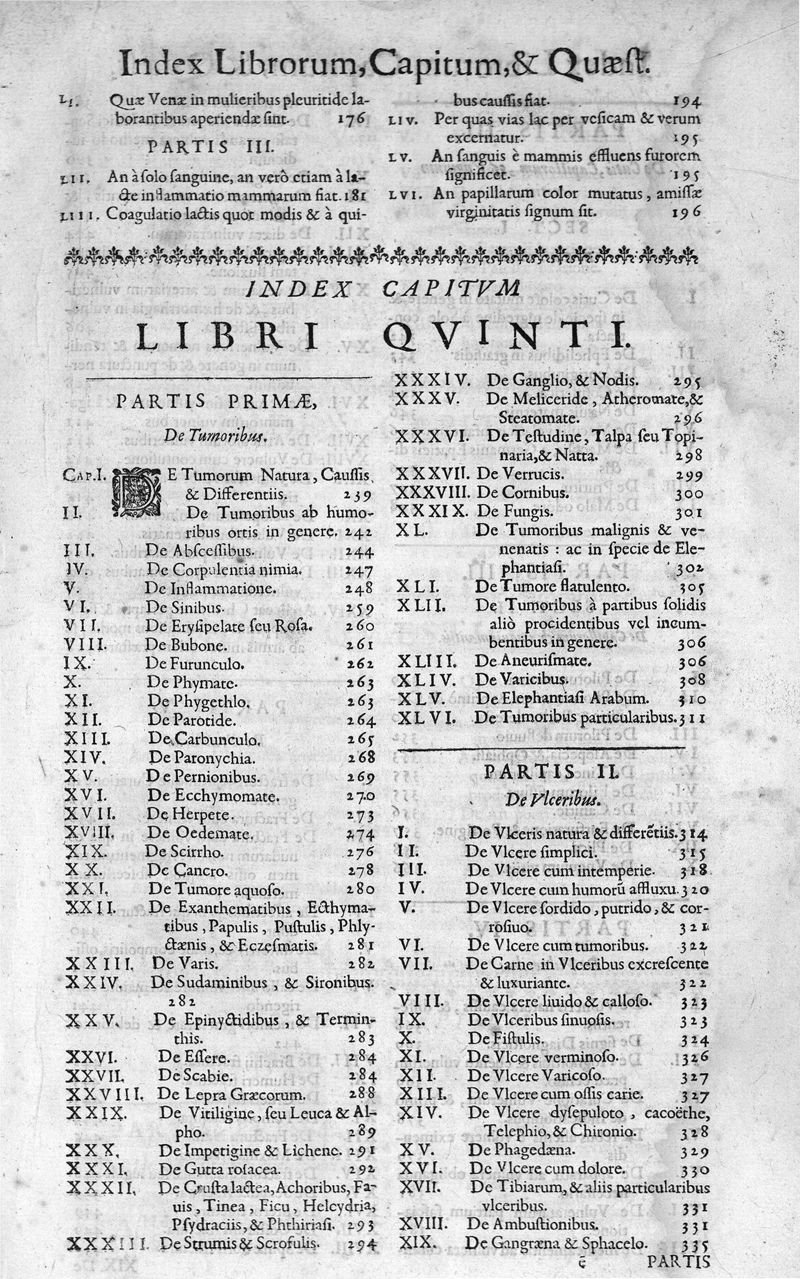 Index Librorum, Capitum, & Quæst.
LI. Quæ Venæ in mulieribus pleuritide la-
borantibus aperiendæ sint. 176
PARTIS III.
LII. An à solo sanguine, an verò etiam à la-
cte inflammatio mammarum fiat. 181
LIII. Coagulatio lactis quot modis & à qui-
bus caussis fiat. 194
LIV. Per quas vias lac per vesicam & verum
excernatur. 195
LV. An sanguis è mammis effluens furorem
significet. 195
LVI. An papillarum color mutatus, amissæ
virginitatis signum sit. 196
INDEX CAPITVM
LIBRI QVINTI.
PARTIS PRIMÆ,
De Tumoribus.
CAP. I. DE Tumorum Natura, Caussis,
& Differentiis. 239
II. De Tumoribus ab humo-
ribus ortis in genere. 242
III. De Abscessibus. 244
IV. De Corpulentia nimia. 247
V. De Inflammatione. 248
VI. De Sinibus. 259
VII. De Erysipelate seu Rosa. 260
VIII. De Bubone. 261
IX. De Furunculo. 262
X. De Phymate. 263
XI. De Phygethlo. 263
XII. De Parotide. 264
XIII. De Carbunculo. 265
XIV. De Paronychia. 268
XV. De Pernionibus. 269
XVI. De Ecchymomate. 270
XVII. De Herpete. 273
XVIII. De Oedemate. 274
XIX. De Scirrho. 276
XX. De Cancro. 278
XXI. De Tumore aquoso. 280
XXII. De Exanthematibus, Ecthyma-
tibus, Papulis, Pustulis, Phly-
ctænis, & Eczesmatis. 281
XXIII. De Varis. 282
XXIV. De Sudaminibus, & Sironibus.
282
XXV. De Epinyctidibus, & Termin-
this. 283
XXVI. De Essere. 284
XXVII. De Scabie. 284
XXVIII. De Lepra Græcorum. 288
XXIX. De Vitiligine, seu Leuca & Al-
pho. 289
XXX. De Impetigine & Lichene. 291
XXXI. De Gutta rosacea. 292
XXXII. De Crusta lactea, Achoribus, Fa-
uis, Tinea, Ficu, Helcydria,
Psydraciis, & Phthiriasi. 293
XXXIII. De Strumis & Scrofulis. 294
XXXIV. De Ganglio, & Nodis. 295
XXXV. De Meliceride, Atheromate, &
Steatomate. 296
XXXVI. De Testudine, Talpa seu Topi-
naria, & Natta. 298
XXXVII. De Verrucis. 299
XXXVIII. De Cornibus. 300
XXXIX. De Fungis. 301
XL. De Tumoribus malignis & ve-
nenatis : ac in specie de Ele-
phantiasi. 302
XLI. De Tumore flatulento. 305
XLII. De Tumoribus à partibus solidis
aliò procidentibus vel incum-
bentibus in genere. 306
XLIII. De Aneurismate. 306
XLIV. De Varicibus. 308
XLV. De Elephantiasi Arabum. 310
XLVI. De Tumoribus particularibus. 311
PARTIS II.
De Vlceribus.
I. De Vlceris natura & differẽtiis. 314
II. De Vlcere simplici. 315
III. De Vlcere cum intemperie. 318
IV. De Vlcere cum humorū affluxu. 320
V. De Vlcere sordido, putrido, & cor-
rosiuo. 321
VI. De Vlcere cum tumoribus. 322
VII. De Carne in Vlceribus excrescente
& luxuriante. 322
VIII. De Vlcere liuido & calloso. 323
IX. De Vlceribus sinuosis. 323
X. De Fistulis. 324
XI. De Vlcere verminoso. 326
XII. De Vlcere Varicoso. 327
XIII. De Vlcere cum ossis carie. 327
XIV. De Vlcere dysepuloto, cacoëthe,
Telephio, & Chironio. 328
XV. De Phagedæna. 329
XVI. De Vlcere cum dolore. 330
XVII. De Tibiarum, & aliis particularibus
vlceribus. 331
XVIII. De Ambustionibus. 331
XIX. De Gangræna & Sphacelo. 335
PARTIS